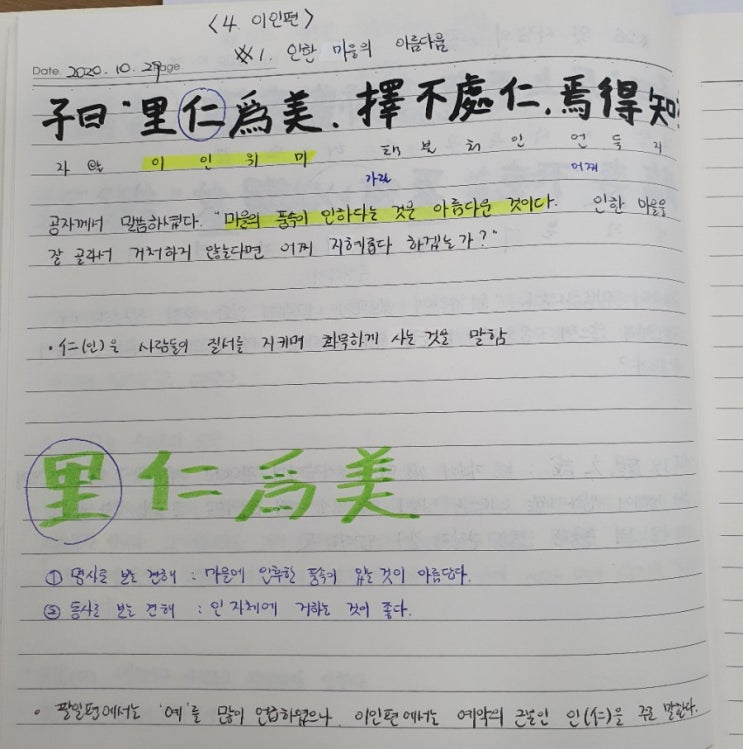 <4. 이인편>
※1. 인한 마을의 아름다움
Date. 2020. 10. 29 Page.
子曰 "里仁爲美. 擇不處仁. 焉得知
자 왈 이 인 위 미 택 불 처 인 언 득 지
가릴 어찌
공자께서 말씀하셨다. "마을의 풍속이 인하다는 것은 아름다운 것이다. 인한 마을을
잘 골라서 거처하지 않는다면 어찌 지혜롭다 하겠는가?"
• 仁(인)을 사람들의 질서를 지키며 화목하게 사는 것을 말함
里仁爲美
① 명사로 보는 견해 : 마을에 인후한 풍속이 있는 것이 아름답다.
② 동사로 보는 견해 : 인 자체에 거하는 것이 좋다.
• 팔일편에서는 '예'를 많이 언급하였으나, 이인편에서는 예악의 근본인 인(仁)을 주로 말한다.